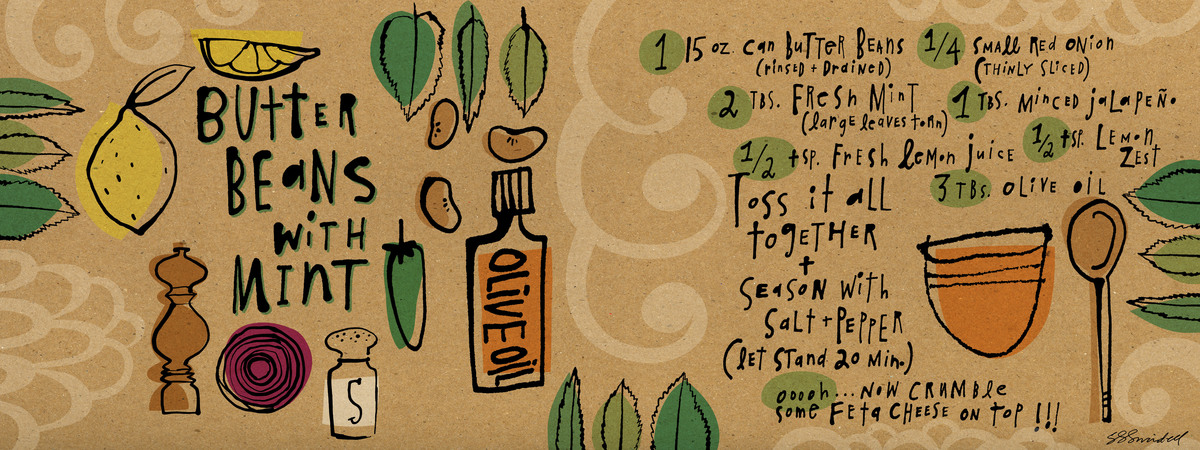 BUttER
BEaNS
WiTH
MINT
OLIVE OiL
S
1 15 oz. can BuTTER BEANS
(rinsed + Drained)
1/4 Small Red ONion
(THiNLY SLiCED)
2 TBS. FResh MinT
(large leaves torn)
1 TBS. MiNced jaLaPEÑo
1/2 tsp. FrESH lemon juice
1/2 tsp. Lemon
ZEst
3 TBS. oLiVE oiL
Toss it aLL
toGETHER
+
SEaSoN WitH
SaLt + PEPPER
(LET STand 20 Min.)
ooooh...NoW CRUMBLe
some FEta CHEESE oN toP !!!